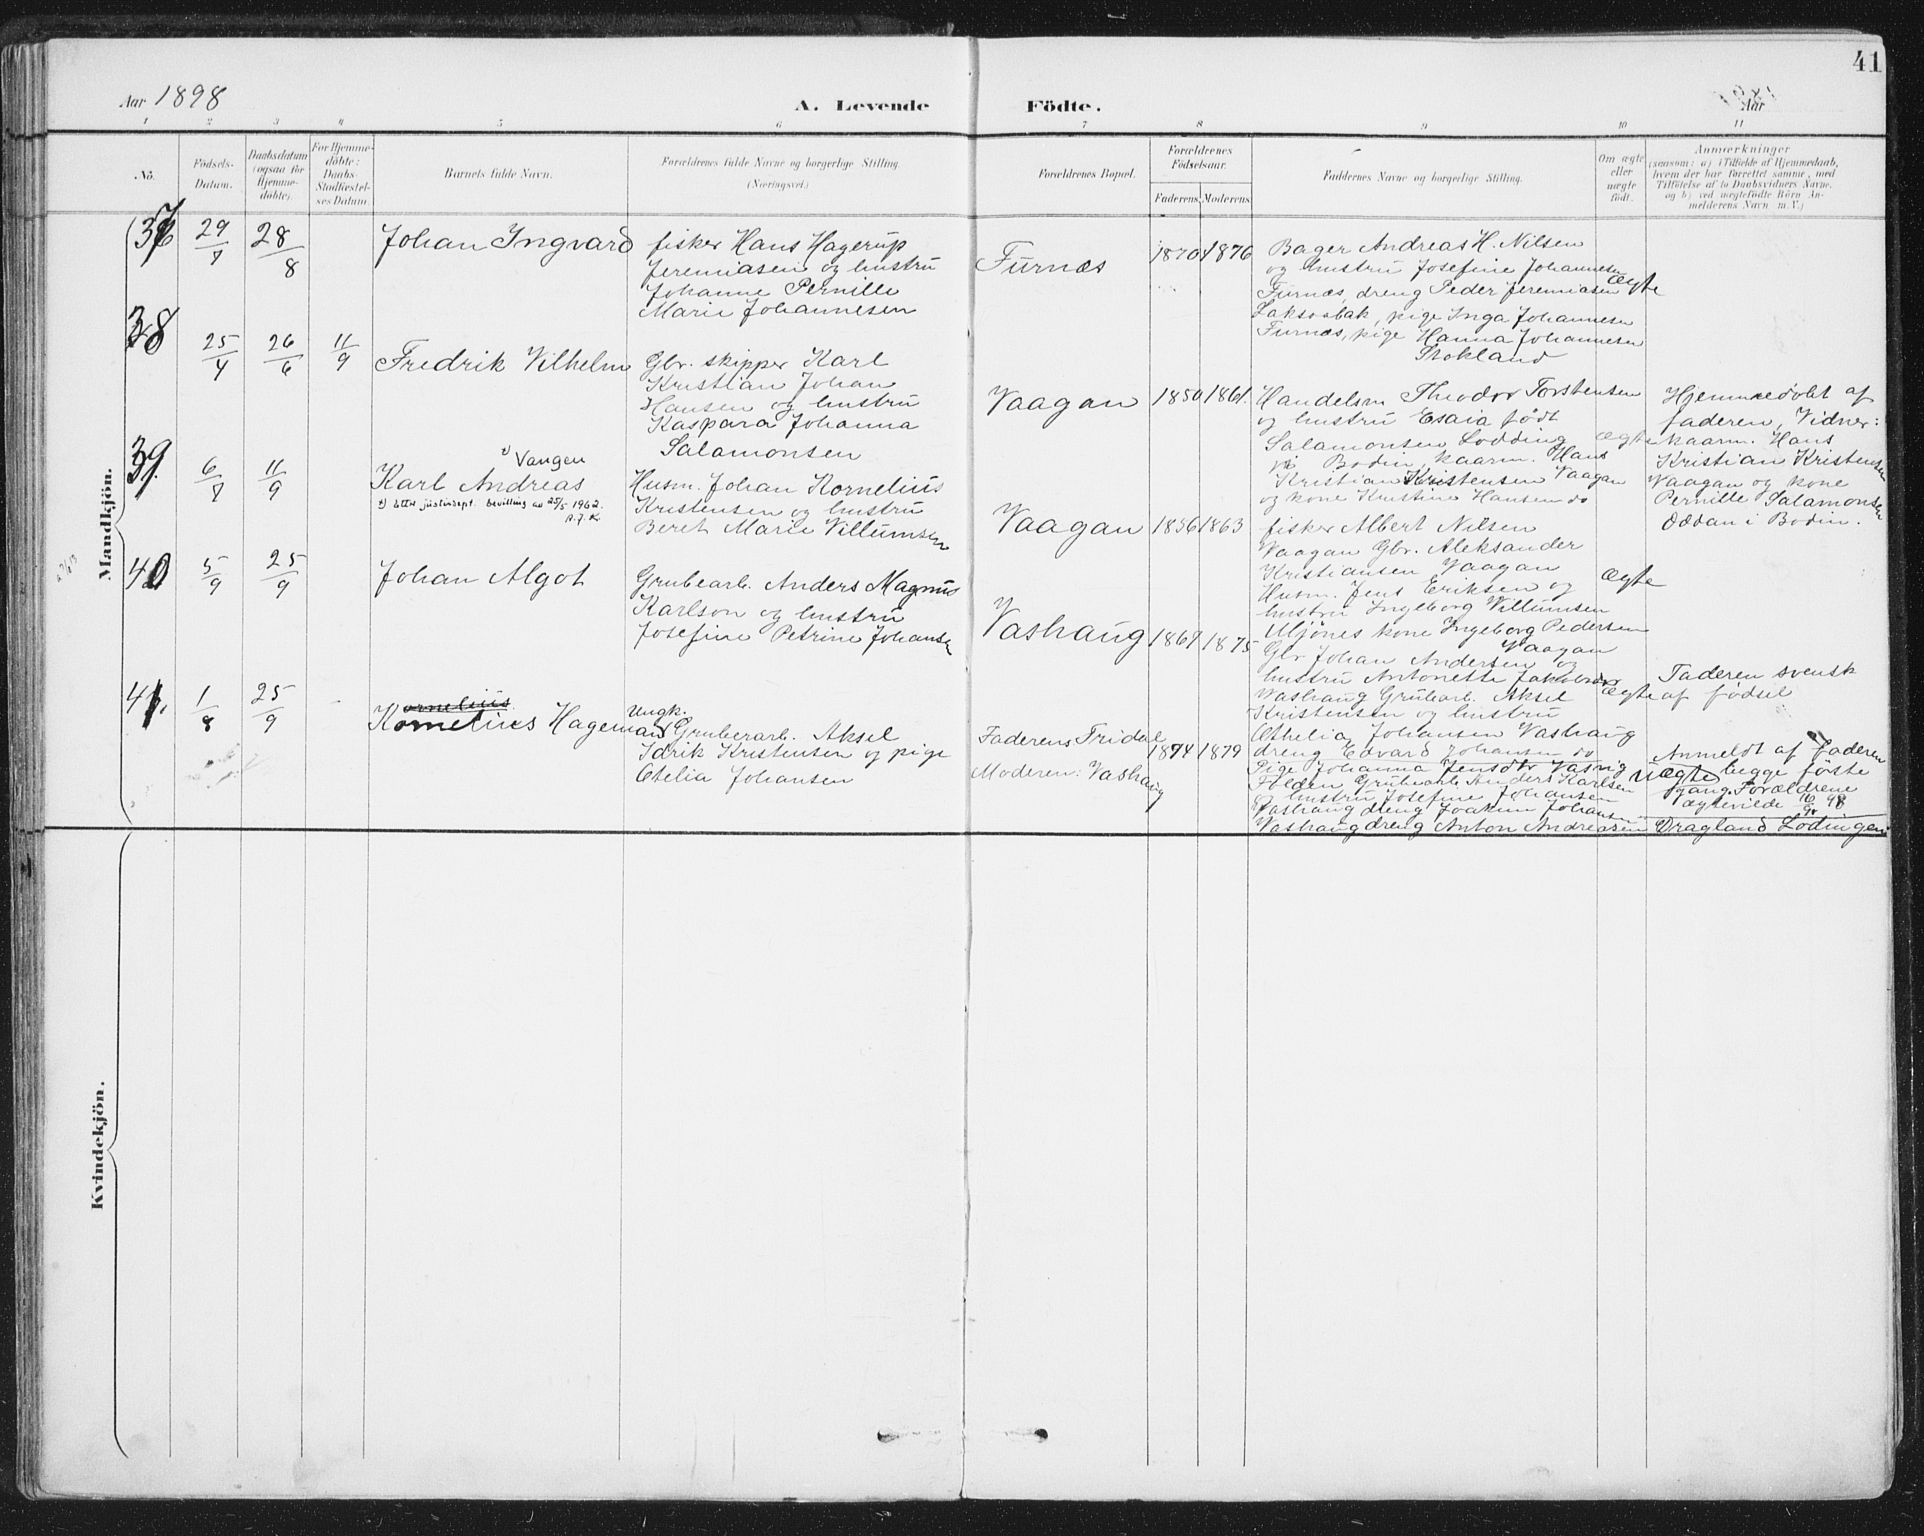 41
Aar 1898
A. Levende
Födte.
Aar
1 2 3 4 5 6 7 8 9 10 11
No.
Födsels-
Datum.
Daabsdatum
(ogsaa for
Hjemme-
döbte).
For Hjemme-
döbte:
Daabs-
Stadfæstel-
ses Datum.
Barnets fulde Navn.
Forældrenes fulde Navne og borgerlige Stilling.
(Næringsvei.)
Forældrenes Bopæl.
Forældrenes
Födselsaar.
Faderens. Moderens.
Faddernes Navne og borgerlige Stilling.
Om ægte
eller
uægte
født.
Anmærkninger
(saasom: a) i Tilfælde af Hjemmedaab,
hvem der har forrettet samme, med
Tilföielse af to Daabsvidners Navne,
og b) ved uægtefödte Börn An-
melderens Navn m. V.)
Mandkjön.
37
29/7
28/8
Johan Ingvard
fisker Hans Hagerup
Jeremiasen og hustru
Johanne Pernille
Marie Johannesen
Furnæs
1870 1876
Bager Andreas H. Nilsen
og hustru Josefine Johannesen
Furnæs, dreng Peder Jeremiasen
Laksosbak, pige Inga Johannesen
Furnæs, pige Hanna Johannesen
Stokland
ægte
38
25/4
26/6
11/9
Fredrik Vilhelm
Gbr. skipper Karl
Kristian Johan
Hansen og hustru
Kaspara Johanna
Salamonsen
Vaagan
1850 1861.
Handelsm Theodor Torstensen
og hustru Esaia født
Salamonsen Lodding
Bodin kaarm. Hans
Kristian Kristensen Vaagan
og kone Kristine Hansen do
ægte
Hjemmedøbt af
faderen, Vidner:
kaarm. Hans
Kristian Kristensen
Vaagan og kone
Pernille Salamonsen
Oddan i Bodin.
39.
6/7
11/9
1) Vangen
Karl Andreas
1) etter justisdept. bevilling av 25/5 1962.
A.J.K.
Husm. Johan Kornelius
Kristensen og hustru
Beret Marie Villumsen
Vaagan
1856 1863
fisker Albert Nilsen
Vaagan Gbr. Aleksander
Kristiansen Vaagan
Husm. Jens Eriksen og
hustru Ingeborg Villumsen
Mjönes kone Ingeborg Pedersen
Vaagan
ægte
40
5/9
25/9
Johan Algot
Grubearb. Anders Magnus
Karlson og hustru
Josefine Petrine Johansen
Vashaug
1869 1875
Gbr Johan Andersen og
hustru Antonette Jakobsdtr
Vashaug Grubearb. Aksel
Kristensen og hustru
Othelia Johansen Vashaug
dreng Edvard Johansen do
ægte
Faderen svensk
af fødsel
41.
1/8
25/9
ornelius
Kornelius Hageman
Ungk.
Gruberarb. Aksel
Idrik Kristensen og pige
Otelia Johansen
Faderens Fridal
Moderen: Vashaug
1874 1879
Pige Johanna Jensdtr Vasvig
Folden Grubearb Anders Karlsen
og hustru Josefine Johansen
Vashaug dreng Joakim Johansen
Vashaug dreng Anton Andreasen
Uægte
Anmeldt af faderen
begge første
gang. Forældrene
ægteviede 16/9 98
Dragland Lödingen
Kvindekjön.